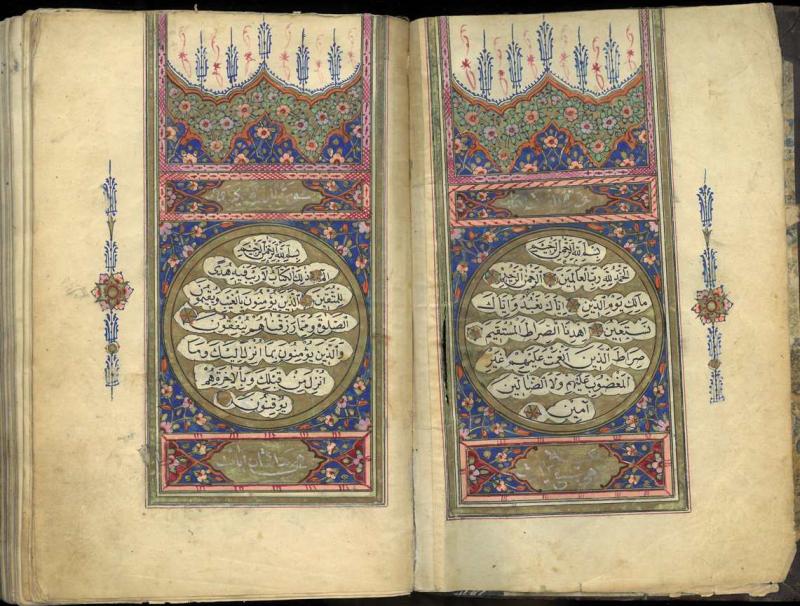 بسم الله الرحمن الرحيم
الحمد لله رب العالمين الرحمن الرحيم
مالك يوم الدين اياك نعبد واياك
نستعين اهدنا الصراط المستقيم
صراط الذين انعمت عليهم غير
المغضوب عليهم ولا الضالين
آمين
بسم الله الرحمن الرحيم
الم ذلك الكتاب لا ريب فيه هدى
للمتقين الذين يؤمنون بالغيب ويقيمون
الصلوة ومما رزقناهم ينفقون
والذين يؤمنون بما انزل اليك وما
انزل من قبلك وبالاخرة هم
يوقنون